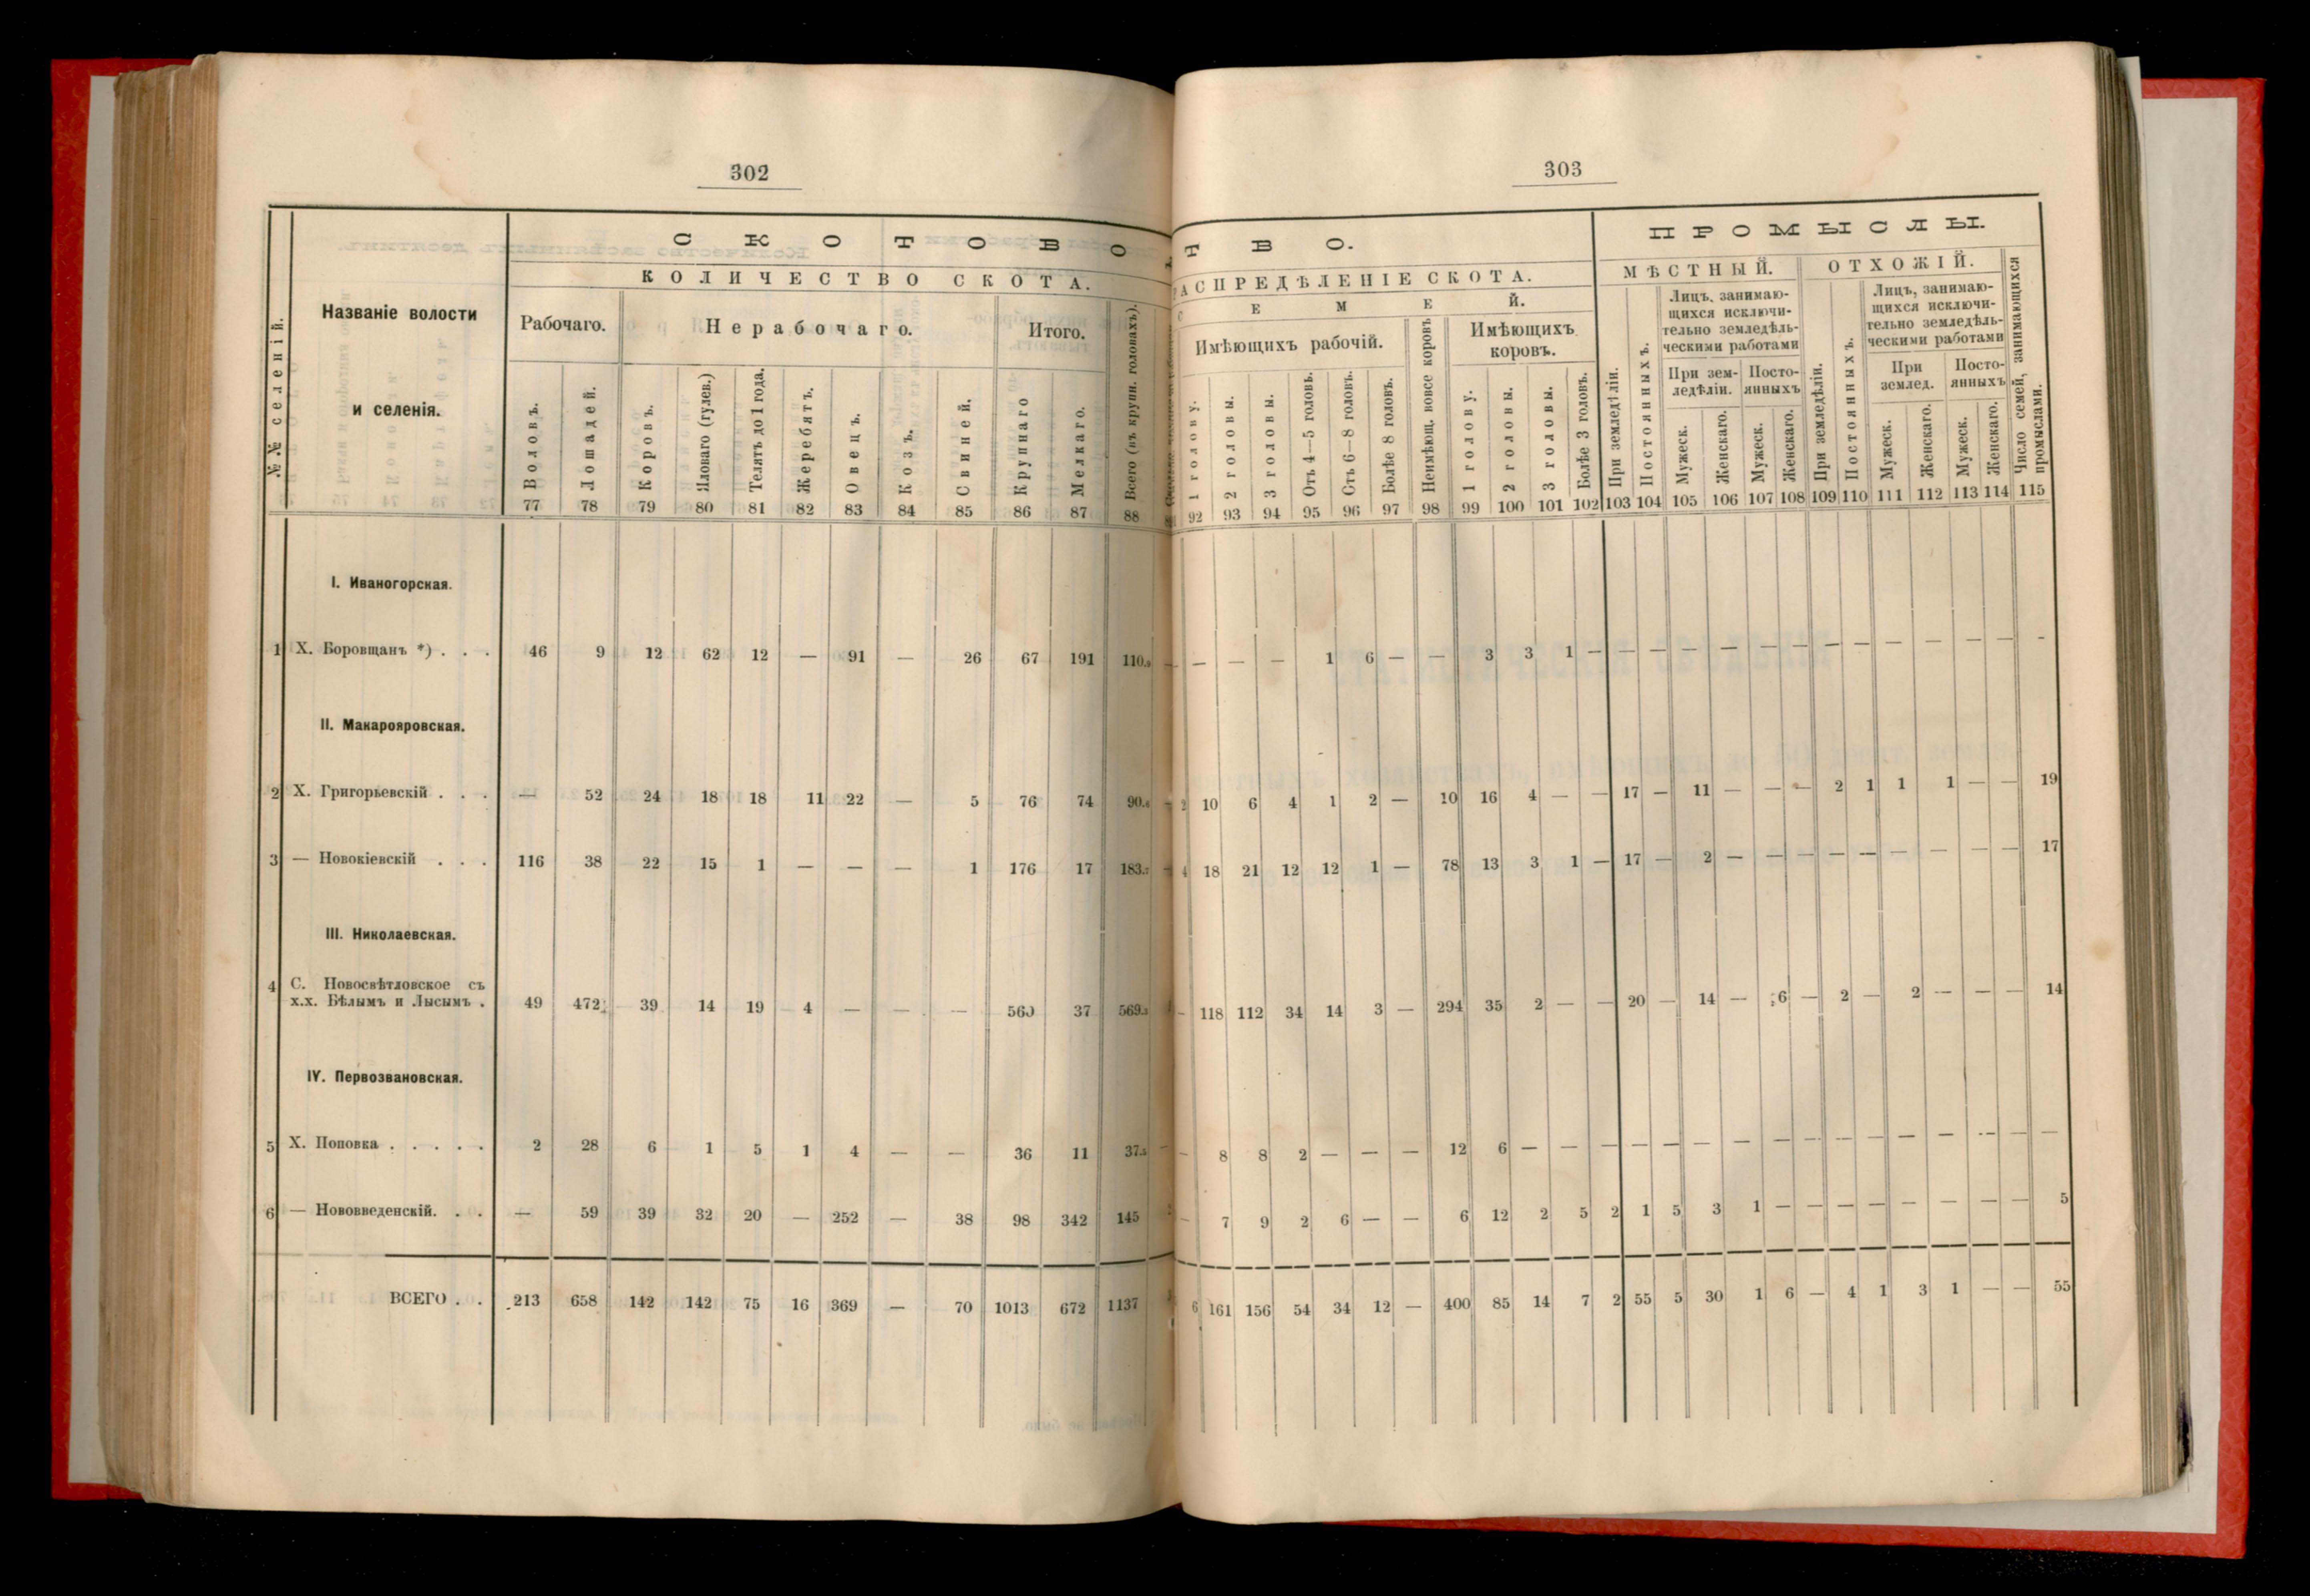 302
СКОТОВО
КОЛИЧЕСТВО СКОТА.
№№ селеній.
Названіе волости
и селенія.
Рабочаго.
Нерабочаго.
Итого.
Воловъ.
Лошадей.
Коровъ.
Яловаго (гулев.)
Телятъ до 1 года.
Жеребятъ.
Овецъ.
Козъ.
Свиней.
Крупнаго
Мелкаго.
Всего (въ крупн. головахъ).
77 78 79 80 81 82 83 84 85 86 87 88
I. Иваногорская.
1 Х. Боровщанъ *) . . . 46 9 12 62 12 — 91 — 26 67 191 110.9
II. Макарояровская.
2 Х. Григорьевскій . . . — 52 24 18 18 11 22 — 5 76 74 90.4
3 — Новокіевскій . . . 116 38 22 15 1 — — — 1 176 17 183.7
III. Николаевская.
4 С. Новосвѣтловское съ
х.х. Бѣлымъ и Лысымъ . 49 472 39 14 19 4 — — — 560 37 569.3
IV. Первозвановская.
5 Х. Поповка . . . . . 2 28 6 1 5 1 4 — — 36 11 37.5
6 — Нововведенскій. . . — 59 39 32 20 — 252 — 38 98 342 145
ВСЕГО . . 213 658 142 142 75 16 369 — 70 1013 672 1137
303
ТВО.
РАСПРЕДѢЛЕНІЕ СКОТА.
СЕМЕЙ.
Имѣющихъ рабочій.
Неимѣющ. вовсе коровъ
Имѣющихъ
коровъ.
1 голову.
2 головы.
3 головы.
Отъ 4—5 головъ.
Отъ 6—8 головъ.
Болѣе 8 головъ.
1 голову.
2 головы.
3 головы.
Болѣе 3 головъ.
ПРОМЫСЛЫ.
МѢСТНЫЙ.
ОТХОЖІЙ.
При земледѣліи.
Постоянныхъ.
Лицъ, занимаю-
щихся исключи-
тельно земледѣль-
ческими работами
При зем-
ледѣліи.
Посто-
янныхъ
Мужеск.
Женскаго.
Мужеск.
Женскаго.
При земледѣліи.
Постоянныхъ.
Лицъ, занимаю-
щихся исключи-
тельно земледѣль-
ческими работами
При
землед.
Посто-
янныхъ
Мужеск.
Женскаго.
Мужеск.
Женскаго.
Число семей, занимающихся
промыслами.
92 93 94 95 96 97 98 99 100 101 102 103 104 105 106 107 108 109 110 111 112 113 114 115
— — — — 1 6 — — 3 3 1 — — — — — — — — — — — — — -
2 10 6 4 1 2 — 10 16 4 — — 17 — 11 — — — 2 1 1 1 — — 19
4 18 21 12 12 1 — 78 13 3 1 — 17 — 2 — — — — — — — — — 17
— 118 112 34 14 3 — 294 35 2 — — 20 — 14 — 6 — 2 — 2 — — — 14
— 8 8 2 — — — 12 6 — — — — — — — — — — — — — — — —
— 7 9 2 6 — — 6 12 2 5 2 1 5 3 1 — — — — — — — — 5
6 161 156 54 34 12 — 400 85 14 7 2 55 5 30 1 6 — 4 1 3 1 — — 55